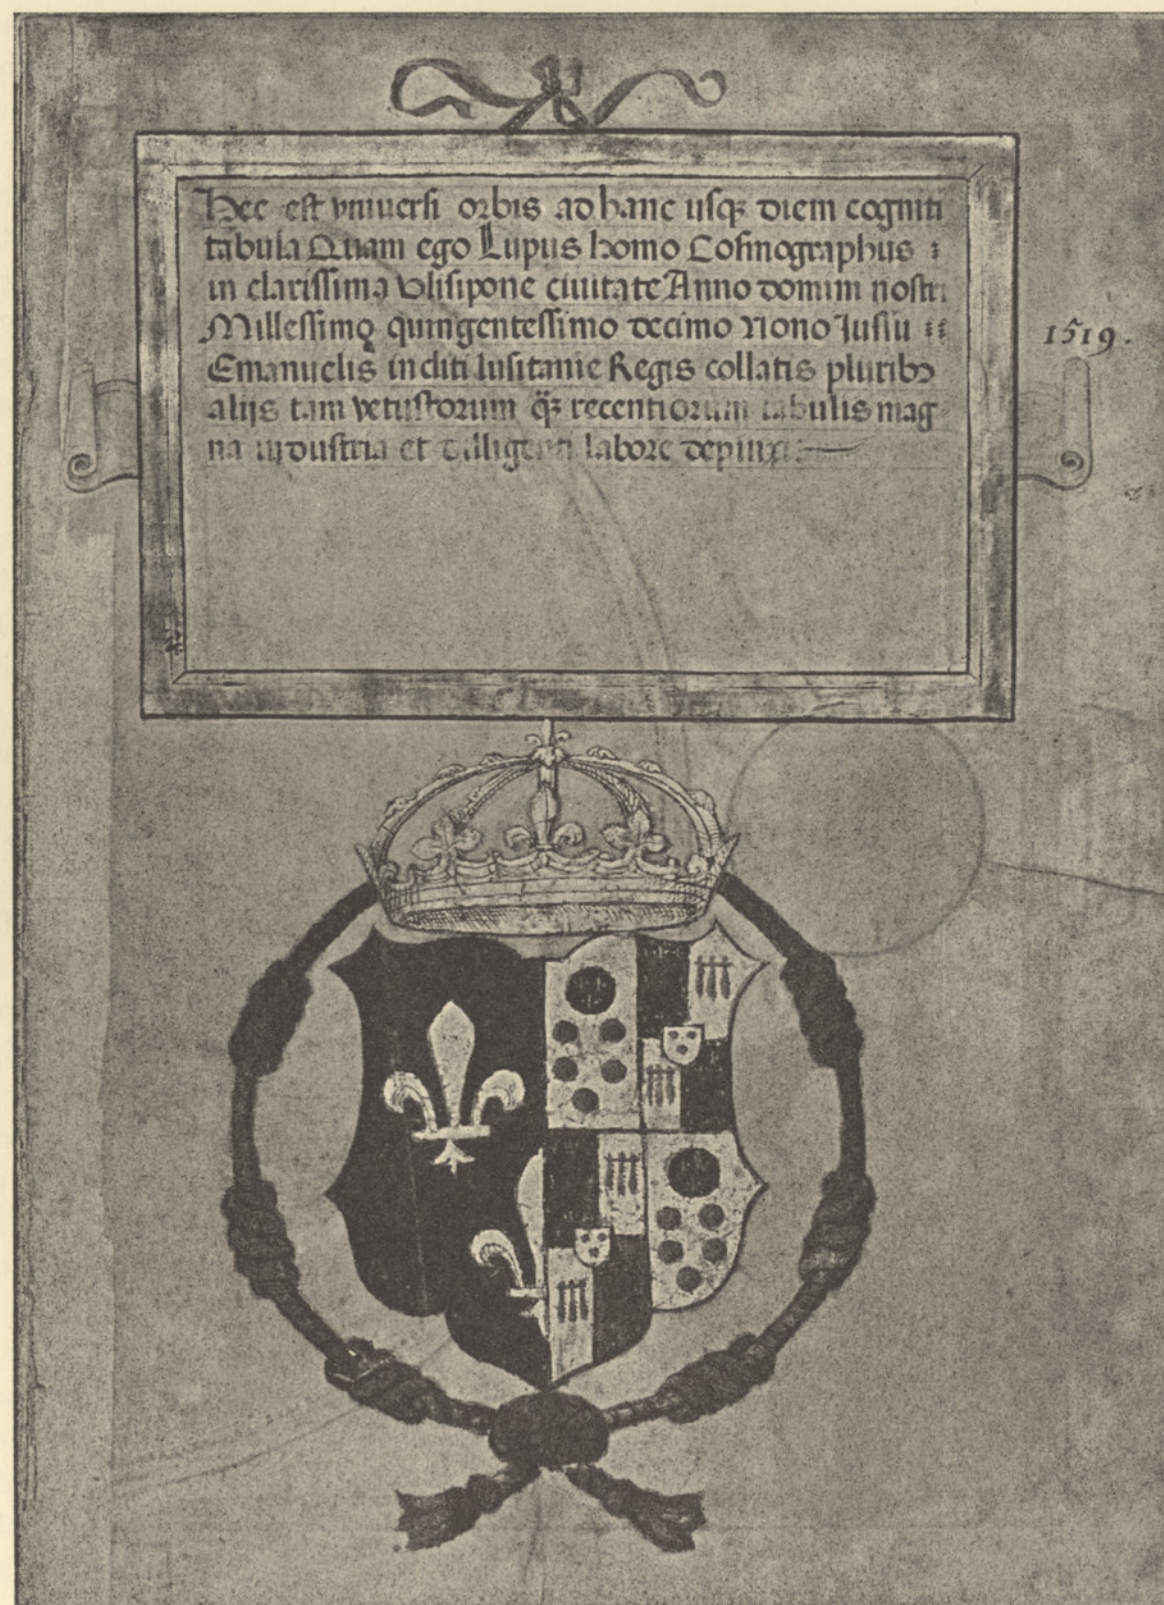 Hec est vniuersi orbis ad hanc usq̨ diem cogniti
tabula Quam ego Lupus homo Cosmographus :
in clarissima Vlisipone ciuitate Anno domini nostri
Millessimo quingentessimo decimo nono Iussu :
1519.
Emanuelis incliti lusitanie Regis collatis pluribꝰ
alijs tam vetustorum q̃ȝ recentiorum tabulis mag
na industria et dilligenti labore depinxi: